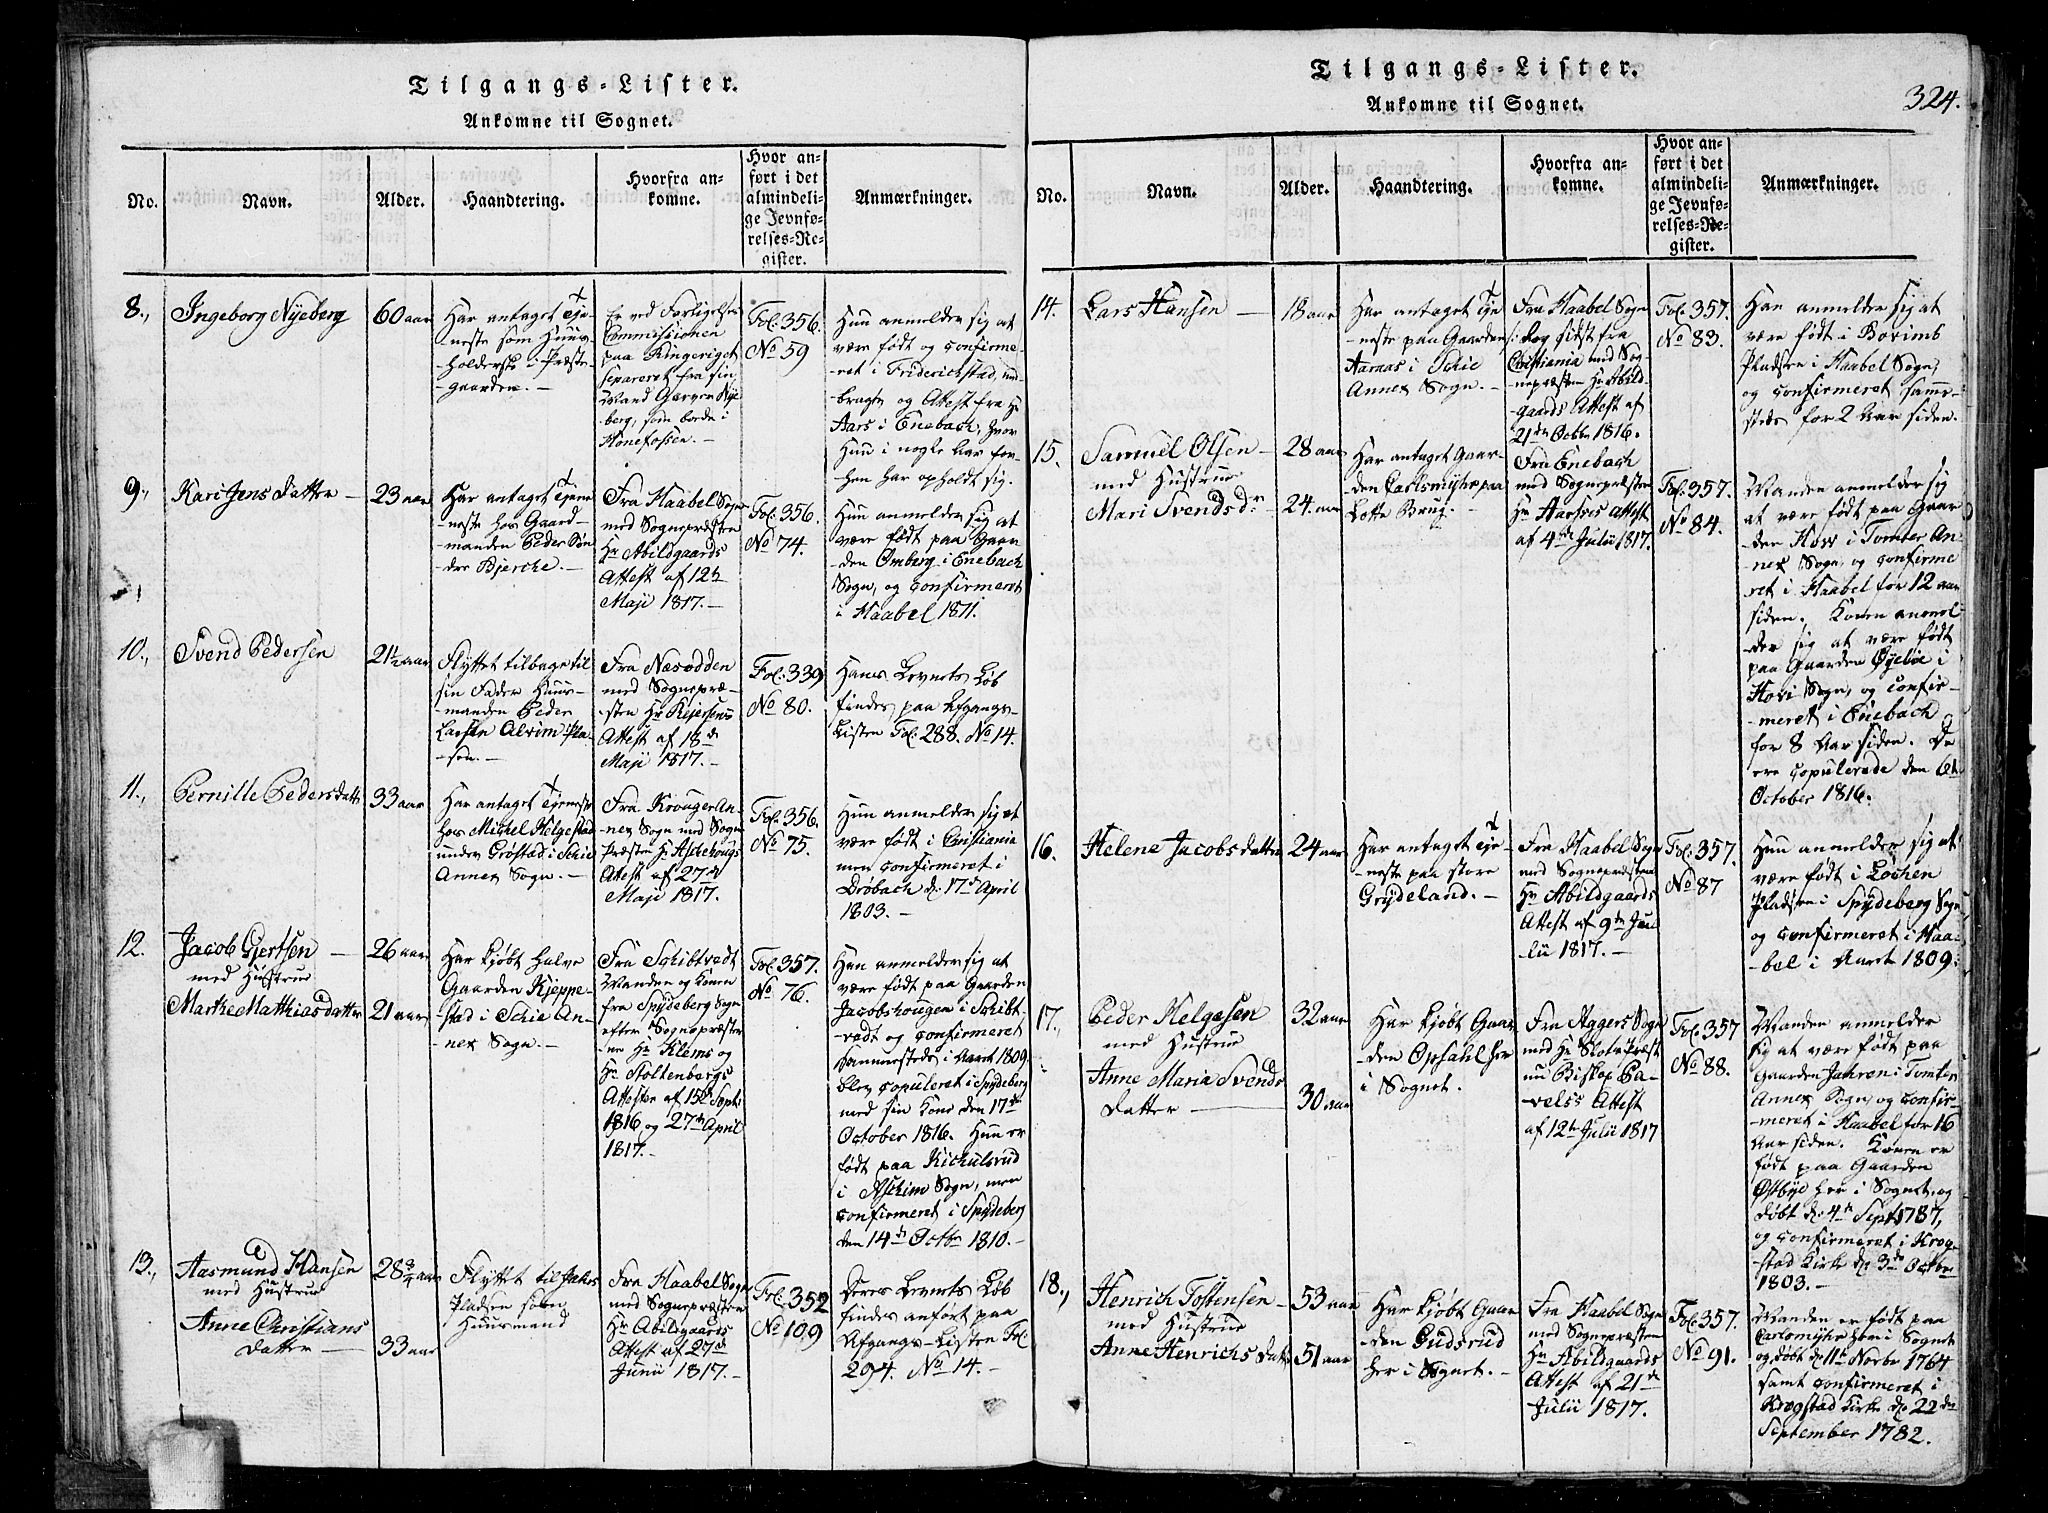 Tilgangs-Lister.
Ankomne til Sognet.
No.
Navn.
Alder.
Haandtering.
Hvorfra an-
komne.
Hvor an-
ført i det
almindeli-
ge Jevnfø-
relses-Re-
gister.
Anmærkninger.
8.,
Ingeborg Nyeberg
60 aar
Har antaget Tje-
-neste som Huus-
-holderske i Præste-
gaarden.-
Er ved Forligelses
Commissionen
paa Ringeriget
separeret fra sin
Mand Garver Nye
berg, som boede i
Hønefossen.-
Fol: 356.
No 59
Hun anmelder sig at
være født og confirme-
ret i Friderichstad, med-
-bragte og Attest fra Hr
Aars i Enebach, hvor
Hun i nogle Aar for-
-hen har opholdt sig.
9.,
Kari Jens Datter -
23 aar
Har antaget Tjene
-neste hos Gaard-
-manden Peder Søn
dre Bjerche.-
Fra Haabel Sogn
med Sognepræsten
Hr Abildgaards
Attest af 12te
Maji 1817.-
Fol: 356.
No 74.
Hun anmelder sig at
være født paa Gaar
-den Omberg i Enebach
Sogn, og confirmeret
i Haabel 1811.
10.,
Svend Pedersen
21½ aar
Flyttet tilbage til
sin Fader Huus-
-manden Peder
Larsen Alvim-Pla-
-sen.-
Fra Næsodden
med Sognepræ-
-sten Hr Rejersens
Attest af 18de
Maji 1817.-
Fol: 339
No 80.
Hans Levnets Løb
findes paa Afgangs-
Listen Fol: 288. No 14.
11.,
Pernille Pedersdatter
33 aar
Har antaget Tjeneste
hos Michel Helgestad
under Grøstad i Schie
Annex Sogn.-
Fra Kroager An-
nex Sogn med Sogne
Præsten Hr Aschehougs
Attest af 27de
Maji 1817.
Fol: 356.
No 75.
Hun anmelder sig at
være født i Christiania
men confirmeret i
Drøbach d. 17de April
1803.-
12.
Jacob Gjertsen -
med Hustrue
Marthe Mathiasdatter
26 aar
21 aar
Har kjøbt halve
Gaarden Kjeppe-
-stad i Schie An-
-nex Sogn.-
Fra Schibtvedt
Manden og Konen
fra Spydeberg Sogn
efter Sognepræster
-ne Hr Klems og
Hr Stoltenbergs
Attester af 15de Sept:
1816, og 27de April
1817.-
Fol: 357.
No 76.
Han anmelder sig at
være født paa Gaarden
Jacobshougen i Schibt-
-vedt og confirmeret
sammestedes i Aaret 1809
blev copuleret i Spydeberg
med sin Kone den 17de
October 1816. Hun er
født paa Kichulsrud
i Aschim Sogn, men
confirmeret i Spydeberg
den 14de Octbr 1810.-
13.,
Aasmund Hansen
med Hustrue
Anne Christians
Datter -
28¾ aar
33 aar
Flyttet til
Pladsen som
Huusmand
Fra Haabel Sogn
med Sognepræsten
Hr Abilgaards
Attest af 27de
Junii 1817.-
Fol: 352
No 109
Deres Levnets Løb
findes anført paa
Afgangs-Listen Fol
294. No 14.-
Tilgangs-Lister.
Ankomne til Sognet.
324.
No.
Navn.
Alder.
Haandtering.
Hvorfra an-
komne.
Hvor an-
ført i det
almindeli-
ge Jevnfø-
relses-Re-
gister.
Anmærkninger.
14.
Lars Hansen -
18 aar
Har antaget Tje
-neste paa Gaarden
Aarnas i Schie
Annex Sogn.-
Fra Haabel Sogn
dog sidst fra
Christiania med Sog-
-nepræsten Hr Abild-
gaards Attest af
21de Octbr 1816.
Fol: 357.
No 83.
Han anmelder sig at
være født i Bovims
Pladsen i Haabel Sogn,
og confirmeret samme-
steds for 2 Aar siden.
15.
Samuel Olsen -
med Hustrue
Mari Svendsdr
28 aar
24. aar
Har antaget Gaar-
den Carlsmyhr paa
Lotte Brug.-
Fra Enebach
med Sognepræsten
Hr Aarses Attest
af 4de Julii 1817.
Fol: 357.
No 84.
Manden anmelder sig
at være født paa Gaar
-den How i Tomter An-
nex Sogn, og confirme
-ret i Haabel for 12 aar
siden. Konen anmel-
-der sig at være født
paa Gaarden Øyebøe i
Hovi Sogn, og confir-
-meret i Enebach
for 8 Aar siden. De
ere copulerede den 6te
October 1816.
16.
Helene Jacobs datter
24 aar
Har antaget Tje-
-neste paa store
Grydeland.-
Fra Haabel Sogn
med Sognepræsten
Hr Abildgaards
Attest af 9de Ju-
lii 1817.-
Fol: 357.
No 87
Hun anmelder sig at
være født i Løchen
Pladsen i Spydeberg Sogn,
og confirmeret i Haa-
-bel i Aaret 1809.
17.,
Peder Helgesen
med Hustrue
Anne Maria Svends
Datter -
32 aar
30 aar
Har kjøbt Gaar
-den Opsahl her
i Sognet.
Fra Aggers Sogn
med Hr Slots Præst
nu Biskop Pa-
-vels's Attest
af 12te Julii 1817
Fol: 357
No 88.
Manden anmelder
sig at være født paa
Gaarden Jahren i Tomter
Annex Sogn, og confir-
-meret i Haabel for 16
Aar siden. Konen er
født paa Gaarden
Østbye her i Sognet, og
døbt d. 4de Sept: 1787,
og confirmeret i Krog-
stad Kirke d. 3de Octbr
1803.-
18.,
Henrich Tostensen -
med Hustrue
Anne Henrichs Datter
53 aar
51 aar
Har kjøbt Gaar
-den Gudsrud
her i Sognet.-
Fra Haabel Sogn
med Sognepræsten
Hr Abildgaards
Attest af 21de
Julii 1817.
Fol: 357.
No 91.
Manden er født paa
Carlsmyhr her i Sognet
og døbt d. 11te Novbr 1764
samt confirmeret i
Krogstad Kirke d. 22de
September 1782.